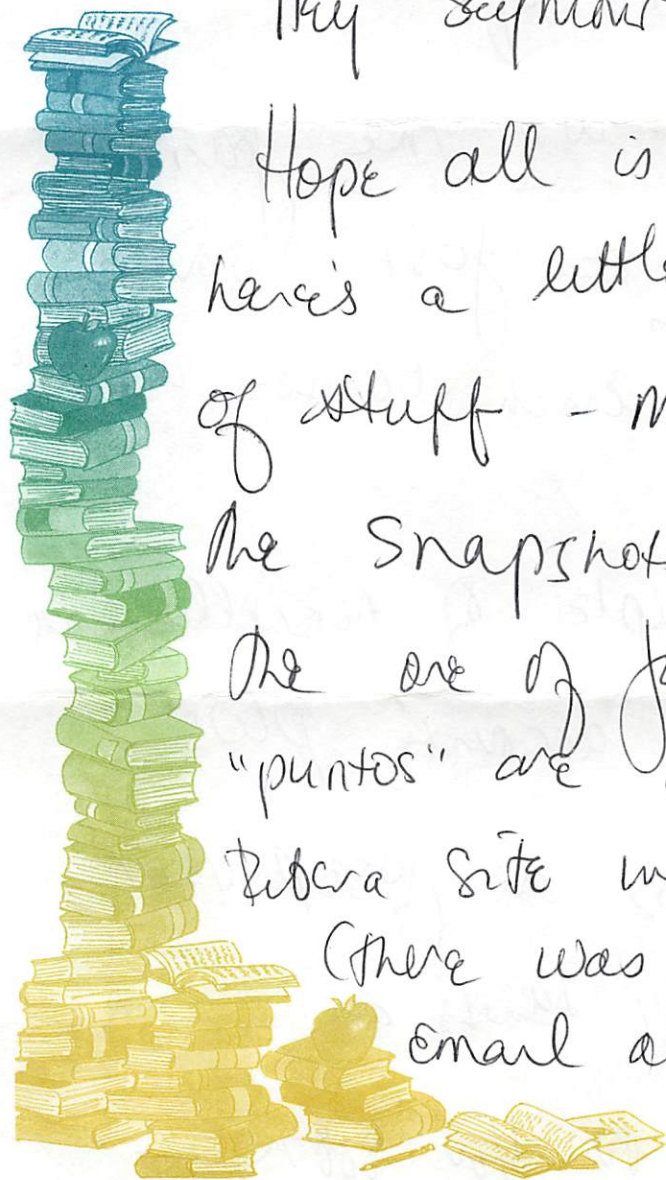 Hey Seymour
Hope all is
here's a little
of stuff -
the Snapshot
the one of
"puntos" are
Ribera Site
(there was
Email